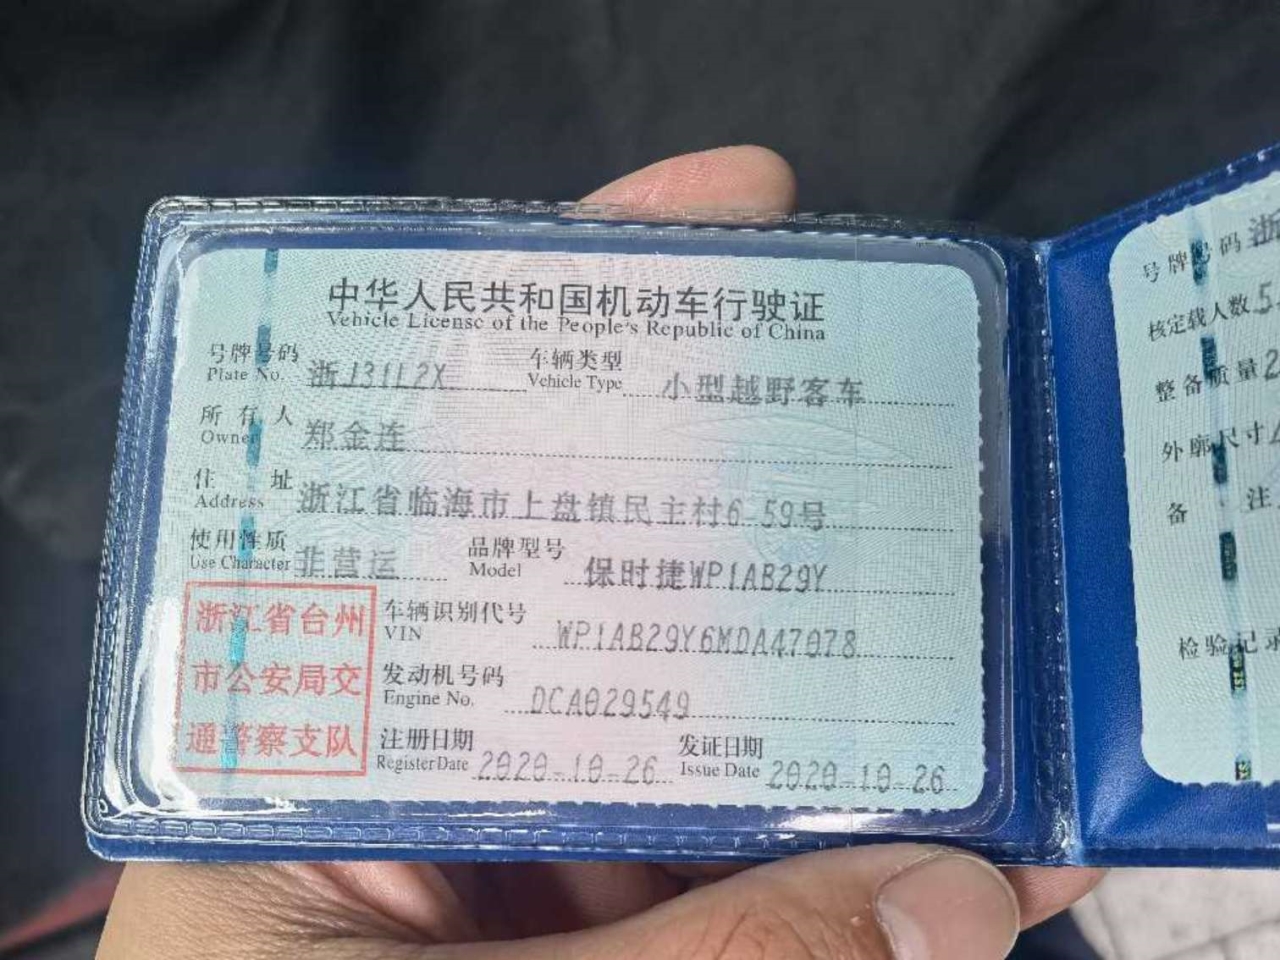 中华人民共和国机动车行驶证
Vehicle License of the People's Republic of China
号牌号码 浙J31L2X 车辆类型 小型越野客车
Plate No. Vehicle Type
所有人 郑金连
Owner
住址 浙江省临海市上盘镇民主村6-59号
Address
使用性质 非营运 品牌型号 保时捷WP1AB29Y
Use Character Model
浙江省台州
市公安局交
通警察支队
车辆识别代号 WP1AB29Y6MDA47078
VIN
发动机号码 DCA029549
Engine No.
注册日期 2020-10-26 发证日期 2020-10-26
Register Date Issue Date
号牌号码 浙
核定载人数 5
整备质量 2
外廓尺寸
备注
检验记录